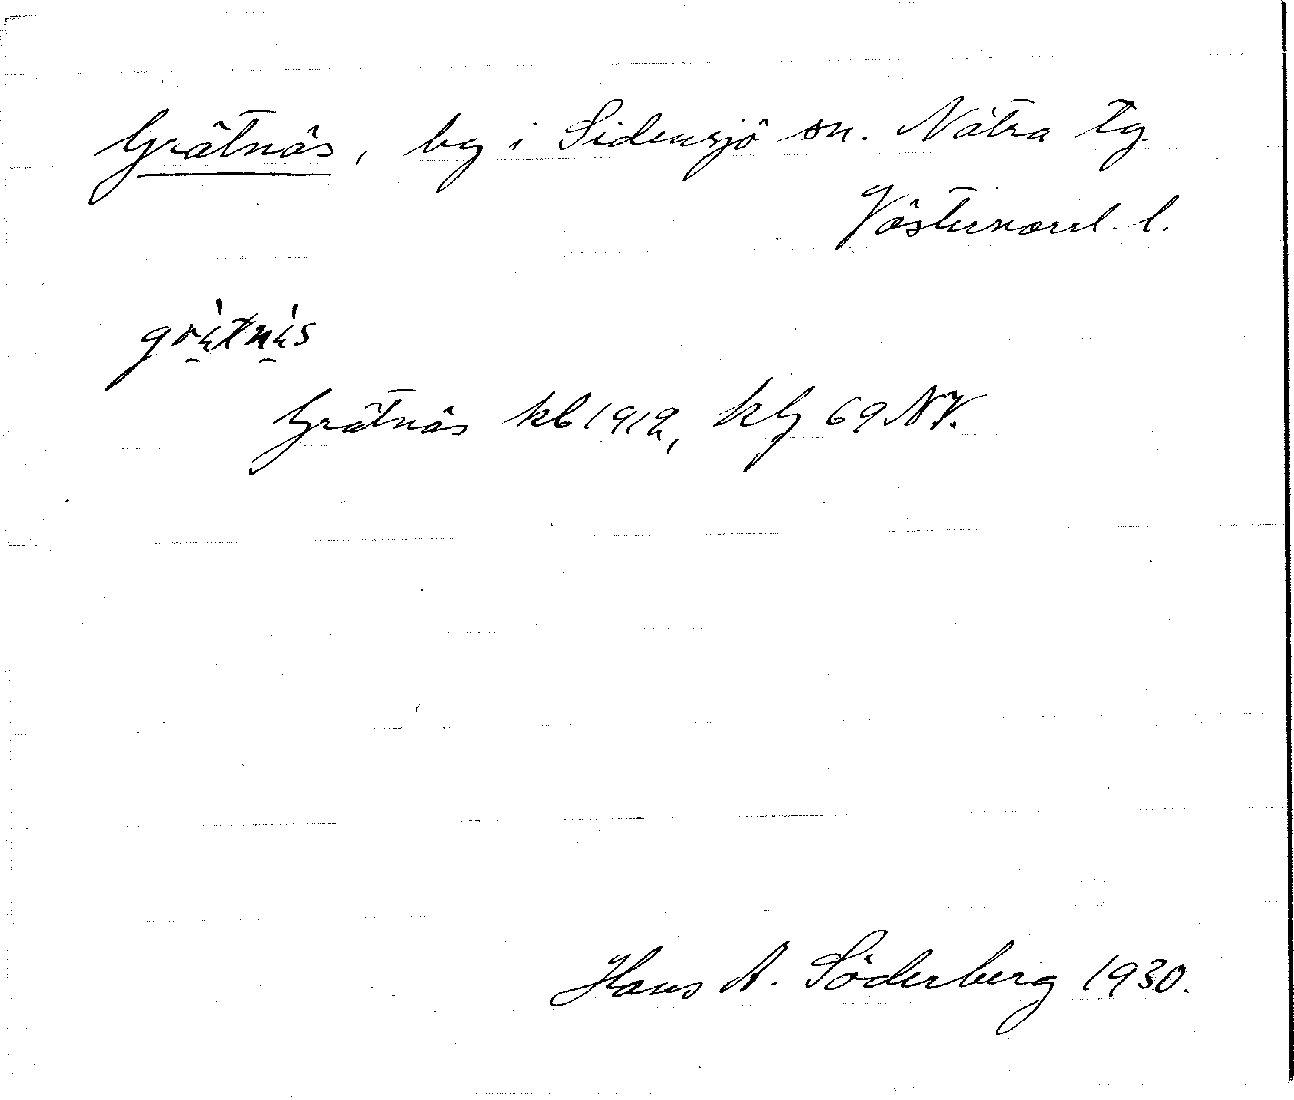 Grätnäs, by i Sidensjö sn. Nätra tg
Västernorrl. l.
Grätnäs kb 1919, kbg 69 NV.
Hans A. Söderberg 1930.